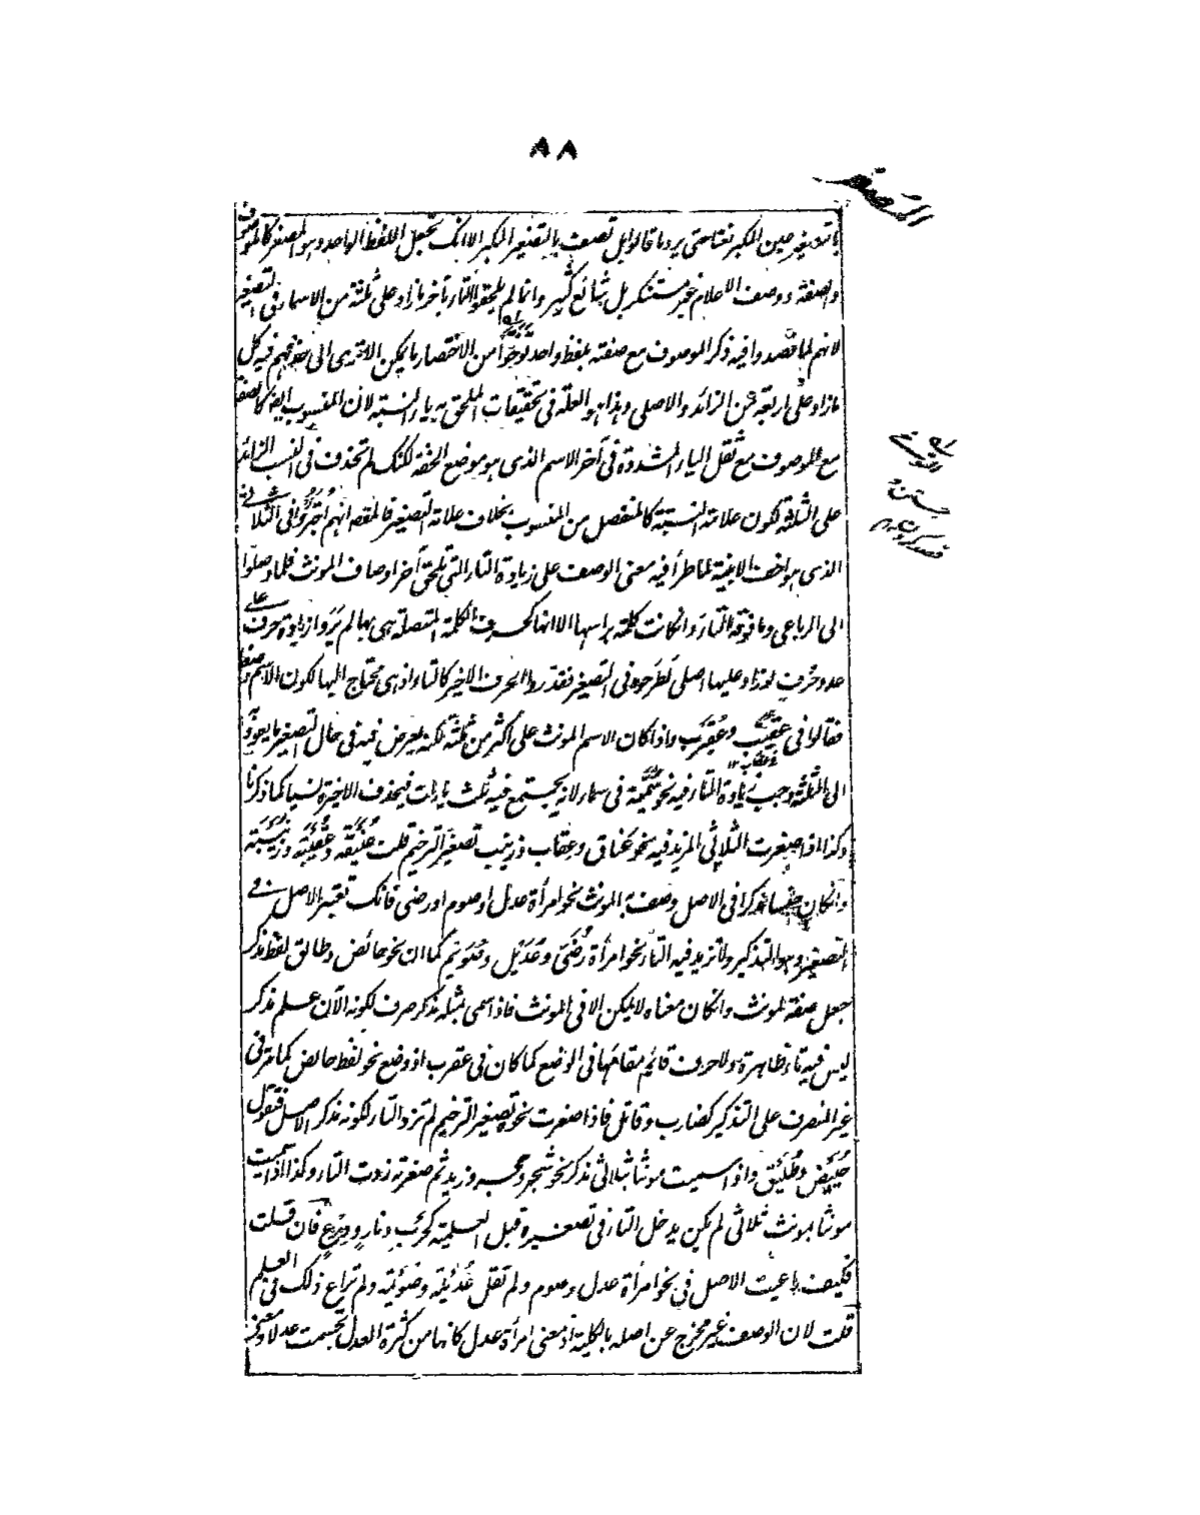 ٨٨
المصغر
باتصغير حين المكبر نعتا حتى يرد ما قالوا بل تصف بالتصغير المكبر الا انك تجعل اللفظ الواحد وهو المصغر كالموصوف
والصفة ووصف الاعلام غير مستنكر بل شائع كثير وانما لم يلحقوا التاء بآخر ما زاد على ثلثة من الاسماء فى التصغير
لانهم لما قصدوا فيه ذكر الموصوف مع صفته بلفظ واحد توخوا من الاختصار ما يمكن الا ترى الى حذفهم فيه كل
ما زاد على اربعة من الزائد والاصلى وهذا هو العلة فى تخفيفات الملحق به ياء النسبة لان المنسوب ايضا كالصفة
مع الموصوف مع ثقل الياء المشددة فى آخر الاسم الذى هو موضع الخفة لكنك لم تحذف فى النسب الزائد
على الثلثة لكون علامة النسبة كالمنفصل من المنسوب بخلاف علامة التصغير فالمقصد انهم اجترؤا فى الثلاثى
الذى هو اخف الابنية لما طرأ فيه معنى الوصف على زيادة التاء التى تلحق آخر اوصاف المونث فلما وصلوا
الى الرباعى وما فوقه التاء وانكانت كلمة برأسها الا انها كحرف الكلمة المتصلة هى بها لم يروا زيادة حرف على
عدد حرف لو زاد عليها اصلى لطرحوه فى التصغير فقدروا الحرف الاخير كالتاء اذ هى محتاج اليها لكون الاسم وصفا
فقالوا فى عقرب عقيرب واذا كان الاسم المونث على اكثر من ثلثة لكنه يعرض فيه فى حال التصغير ما يعود به
الى الثلثة وجب زيادة التاء فيه نحو سمية فى سماء لانه يجتمع فيه ثلث ياءات فيحذف الاخيرة نسيا كما ذكرنا
وكذا اذا صغرت الثلاثى المزيد فيه نحو عناق وعقاب وزينب تصغير الترخيم قلت عنيقة وعقيبة وزنيبة
وانكان جنسا مذكرا فى الاصل وصف به المونث نحو امرأة عدل او صوم او رضى فانك تعتبر الاصل فى
التصغير وهو التذكير ولا تزيد فيه التاء نحو امرأة رضىّ وعديل وصويم كما ان نحو حائض وطالق لفظ مذكر
جعل صفة لمونث وانكان معناه لا يمكن الا فى المونث فاذا سمى بمثله مذكر صرف لكونه الآن علم مذكر
ليس فيه تاء ظاهرة ولا حرف قائم مقامها فى الوضع كما كان فى عقرب اذ وضع نحو لفظ حائض كما مر فى
غير المنصرف على التذكير كضارب وقاتل فاذا صغرت نحوه تصغير الترخيم لم تزد التاء لكونه مذكر الاصل فتقول
حييض وطليق واذا سميت مونثا بثلاثى مذكر نحو شجر وحجر وزيد ثم صغرته زدت التاء وكذا اذا سميت
مونثا بمونث ثلاثى لم يكن يدخل التاء فى تصغيره قبل العلمية كحرب ونار ودرع فان قلت
فكيف راعيت الاصل فى نحو امرأة عدل وصوم ولم تقل عديلة وصويمة ولم تراع ذلك فى العلم
قلت لان الوصف غير مخرج عن اصله بالكلية اذ معنى امرأة عدل كانها من كثرة العدل تجسمت عدلا ومعنى